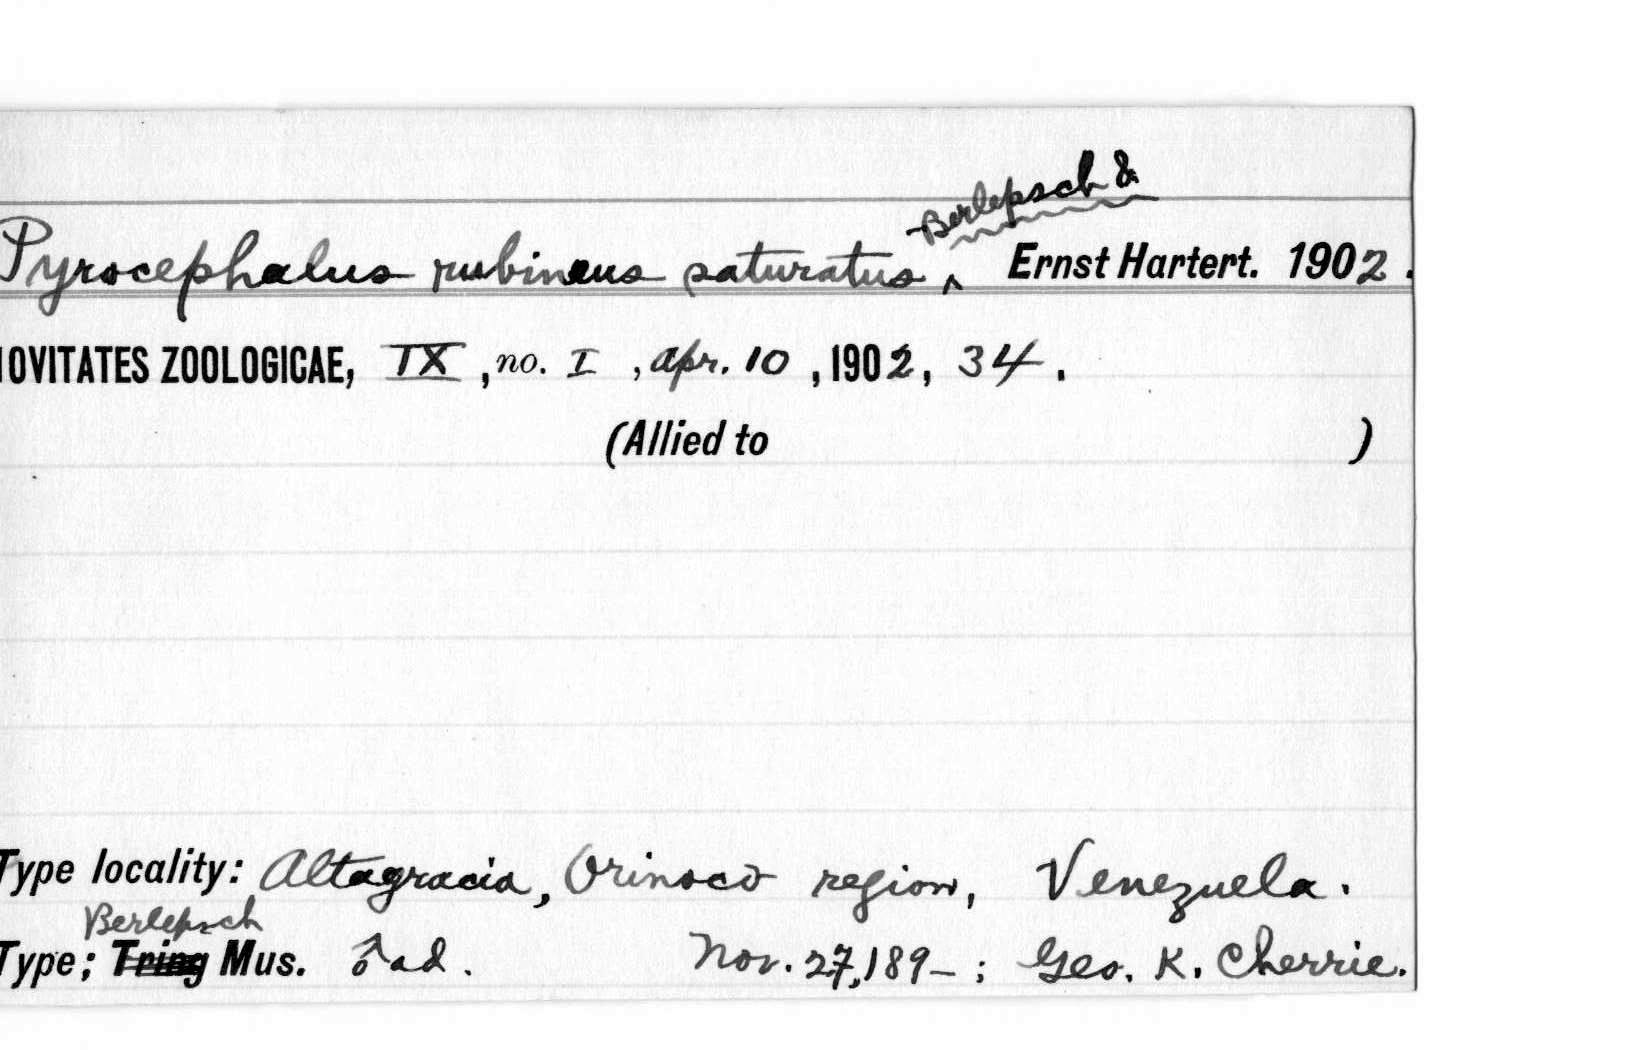 Berlepsch &
Pyrocephalus rubineus saturatus ^ Ernst Hartert. 1902.
OVITATES ZOOLOGICAE, IX, no. I, Apr. 10, 1902, 34.
(Allied to )
Type locality: Altagracia, Orinoco region, Venezuela.
Berlepsch
Type; Tring Mus. ♂ ad. Nov. 27, 189–; Geo. K. Cherrie.